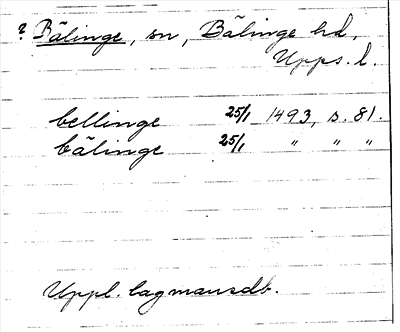 ? Bälinge, sn, Bälinge hd,
Upps. l.
bellinge 25/1 1493, s. 81.
bälinge 25/1 " " "
Uppl. lagmansdb.